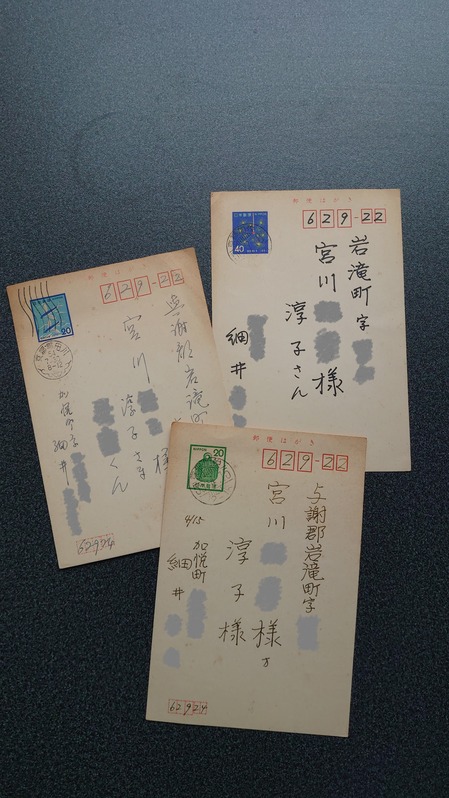 郵便はがき
40
629-22
岩滝町字
宮川 様
淳子さん
細井
郵便はがき
20
629-22
与謝郡岩滝町
宮川 様
淳子さま
くん
加悦町
細井
62924
郵便はがき
NIPPON
20
629-22
与謝郡岩滝町字
宮川 様方
淳子様
4/15
加悦町
細井
62924